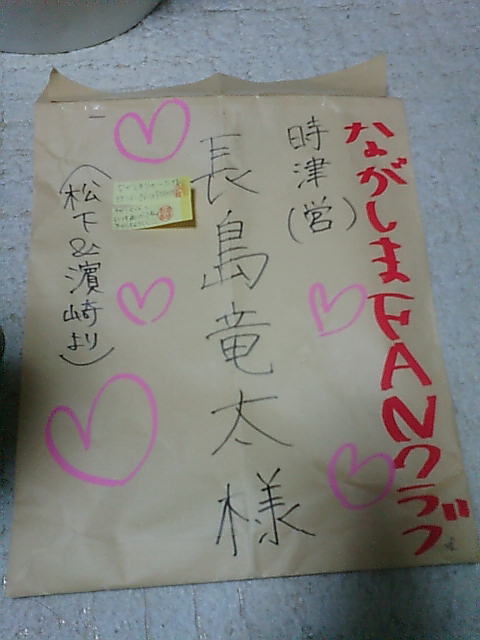 ながしまFANクラブ
時津(営)
長島竜太様
(松下&濱崎より)